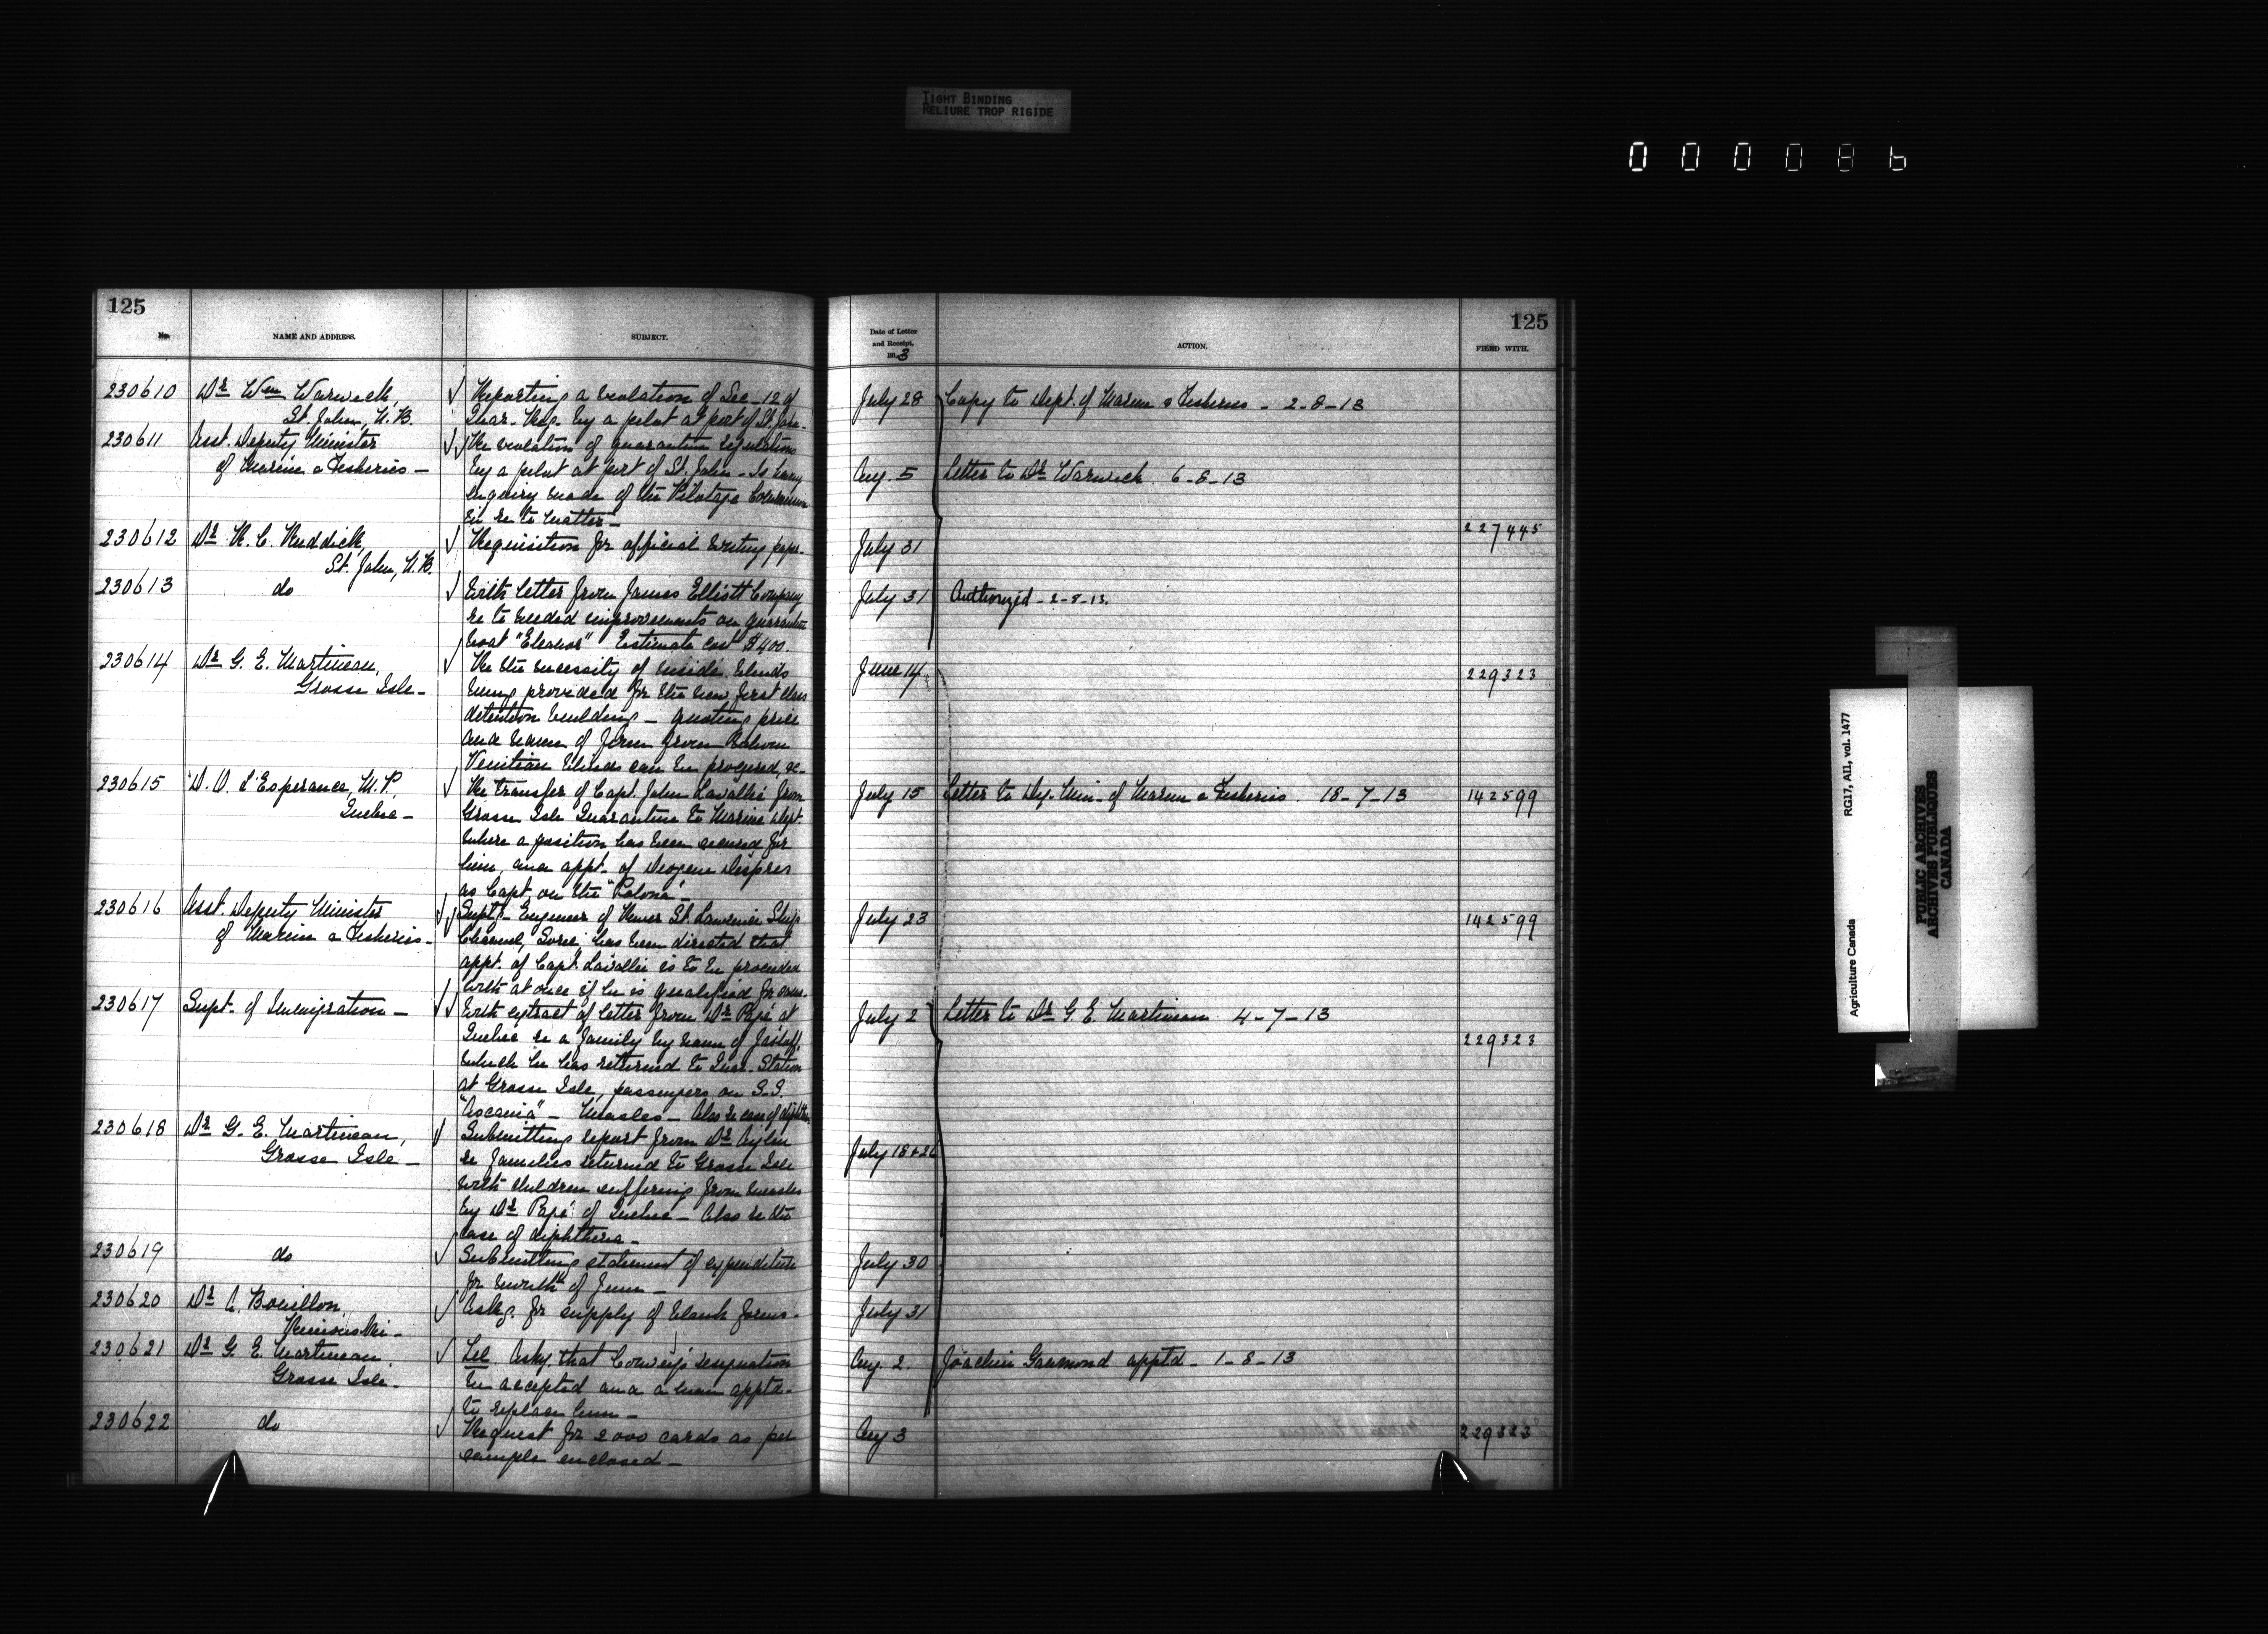 TIGHT BINDING
RELIURE TROP RIGIDE
000086
125
No. NAME AND ADDRESS. SUBJECT.
230610 Dr Wm Warwick, Reporting a violation of Sec-12 of
St. John, N.B. Quar. Reg. by a pilot at port of St. John-
230611 Asst. Deputy Minister Re violation of quarantine regulations
of Marine & Fisheries - by a pilot at port of St. John - Is having
enquiry made of the Pilotage
in re to matter -
230612 Dr R. C. Ruddick, Requisition for official writing paper-
St. John, N.B.
230613 do With letter from James Elliott Company
re to needed improvements on quarantine
boat "Eleanor" Estimate cost $400.
230614 Dr G. E. Martineau, Re the necessity of inside blinds
Grosse Isle - being provided for the new first class
detention building - quoting price
and name of firm from whom
Venitian blinds can be procured, &c-
230615 D. O. L'Esperance, M.P. Re transfer of Capt. John Lavallée from
Quebec - Grosse Isle Quarantine to Marine Dept.
where a position has been secured for
him, and appt. of Despres
as Capt. on the
230616 Asst. Deputy Minister Supt- Engineer of River St. Lawrence Ship
of Marine & Fisheries - Channel, Sorel has been directed that
appt. of Capt. Lavallée is to be proceeded
with at once if he is qualified for same.
230617 Supt. of Immigration - With extract of letter from Dr Pagé at
Quebec re a family by name of
which he has returned to Quar. Station
at Grosse Isle, passengers on S.S.
"Ascania" - Measles - Also re case of diphth.
230618 Dr G. E. Martineau, Submitting report from Dr Aylen
Grosse Isle - re families returned to Grosse Isle
with children suffering from measles
by Dr Pagé of Quebec - Also re the
case of diphtheria -
230619 do Submitting statement of expenditure
for month of June -
230620 Dr A. Bouillon, Askg. for supply of blank forms -
Rimouski -
230621 Dr G. E. Martineau Tel. Askg. that resignation
Grosse Isle - be accepted and a man apptd-
to replace him -
230622 do Request for 2000 cards as per
sample enclosed -
125
Date of Letter
and Receipt, ACTION. FILED WITH.
1913
July 28 Copy to Dept. of Marine & Fisheries - 2-8-13
Aug. 5 Letter to Dr Warwick. 6-8-13
227445
July 31
July 31 Authorized - 2-8-13.
June 14 229323
July 15 Letter to Dy. Min. of Marine & Fisheries. 18-7-13 142599
July 23 142599
July 2 Letter to Dr G. E. Martineau. 4-7-13
229323
July 18 & 26
July 30
July 31
Aug. 2. Joachim apptd - 1-8-13
Aug 3 229323
Agriculture Canada RG17, AII, vol. 1477
PUBLIC ARCHIVES
ARCHIVES PUBLIQUES
CANADA